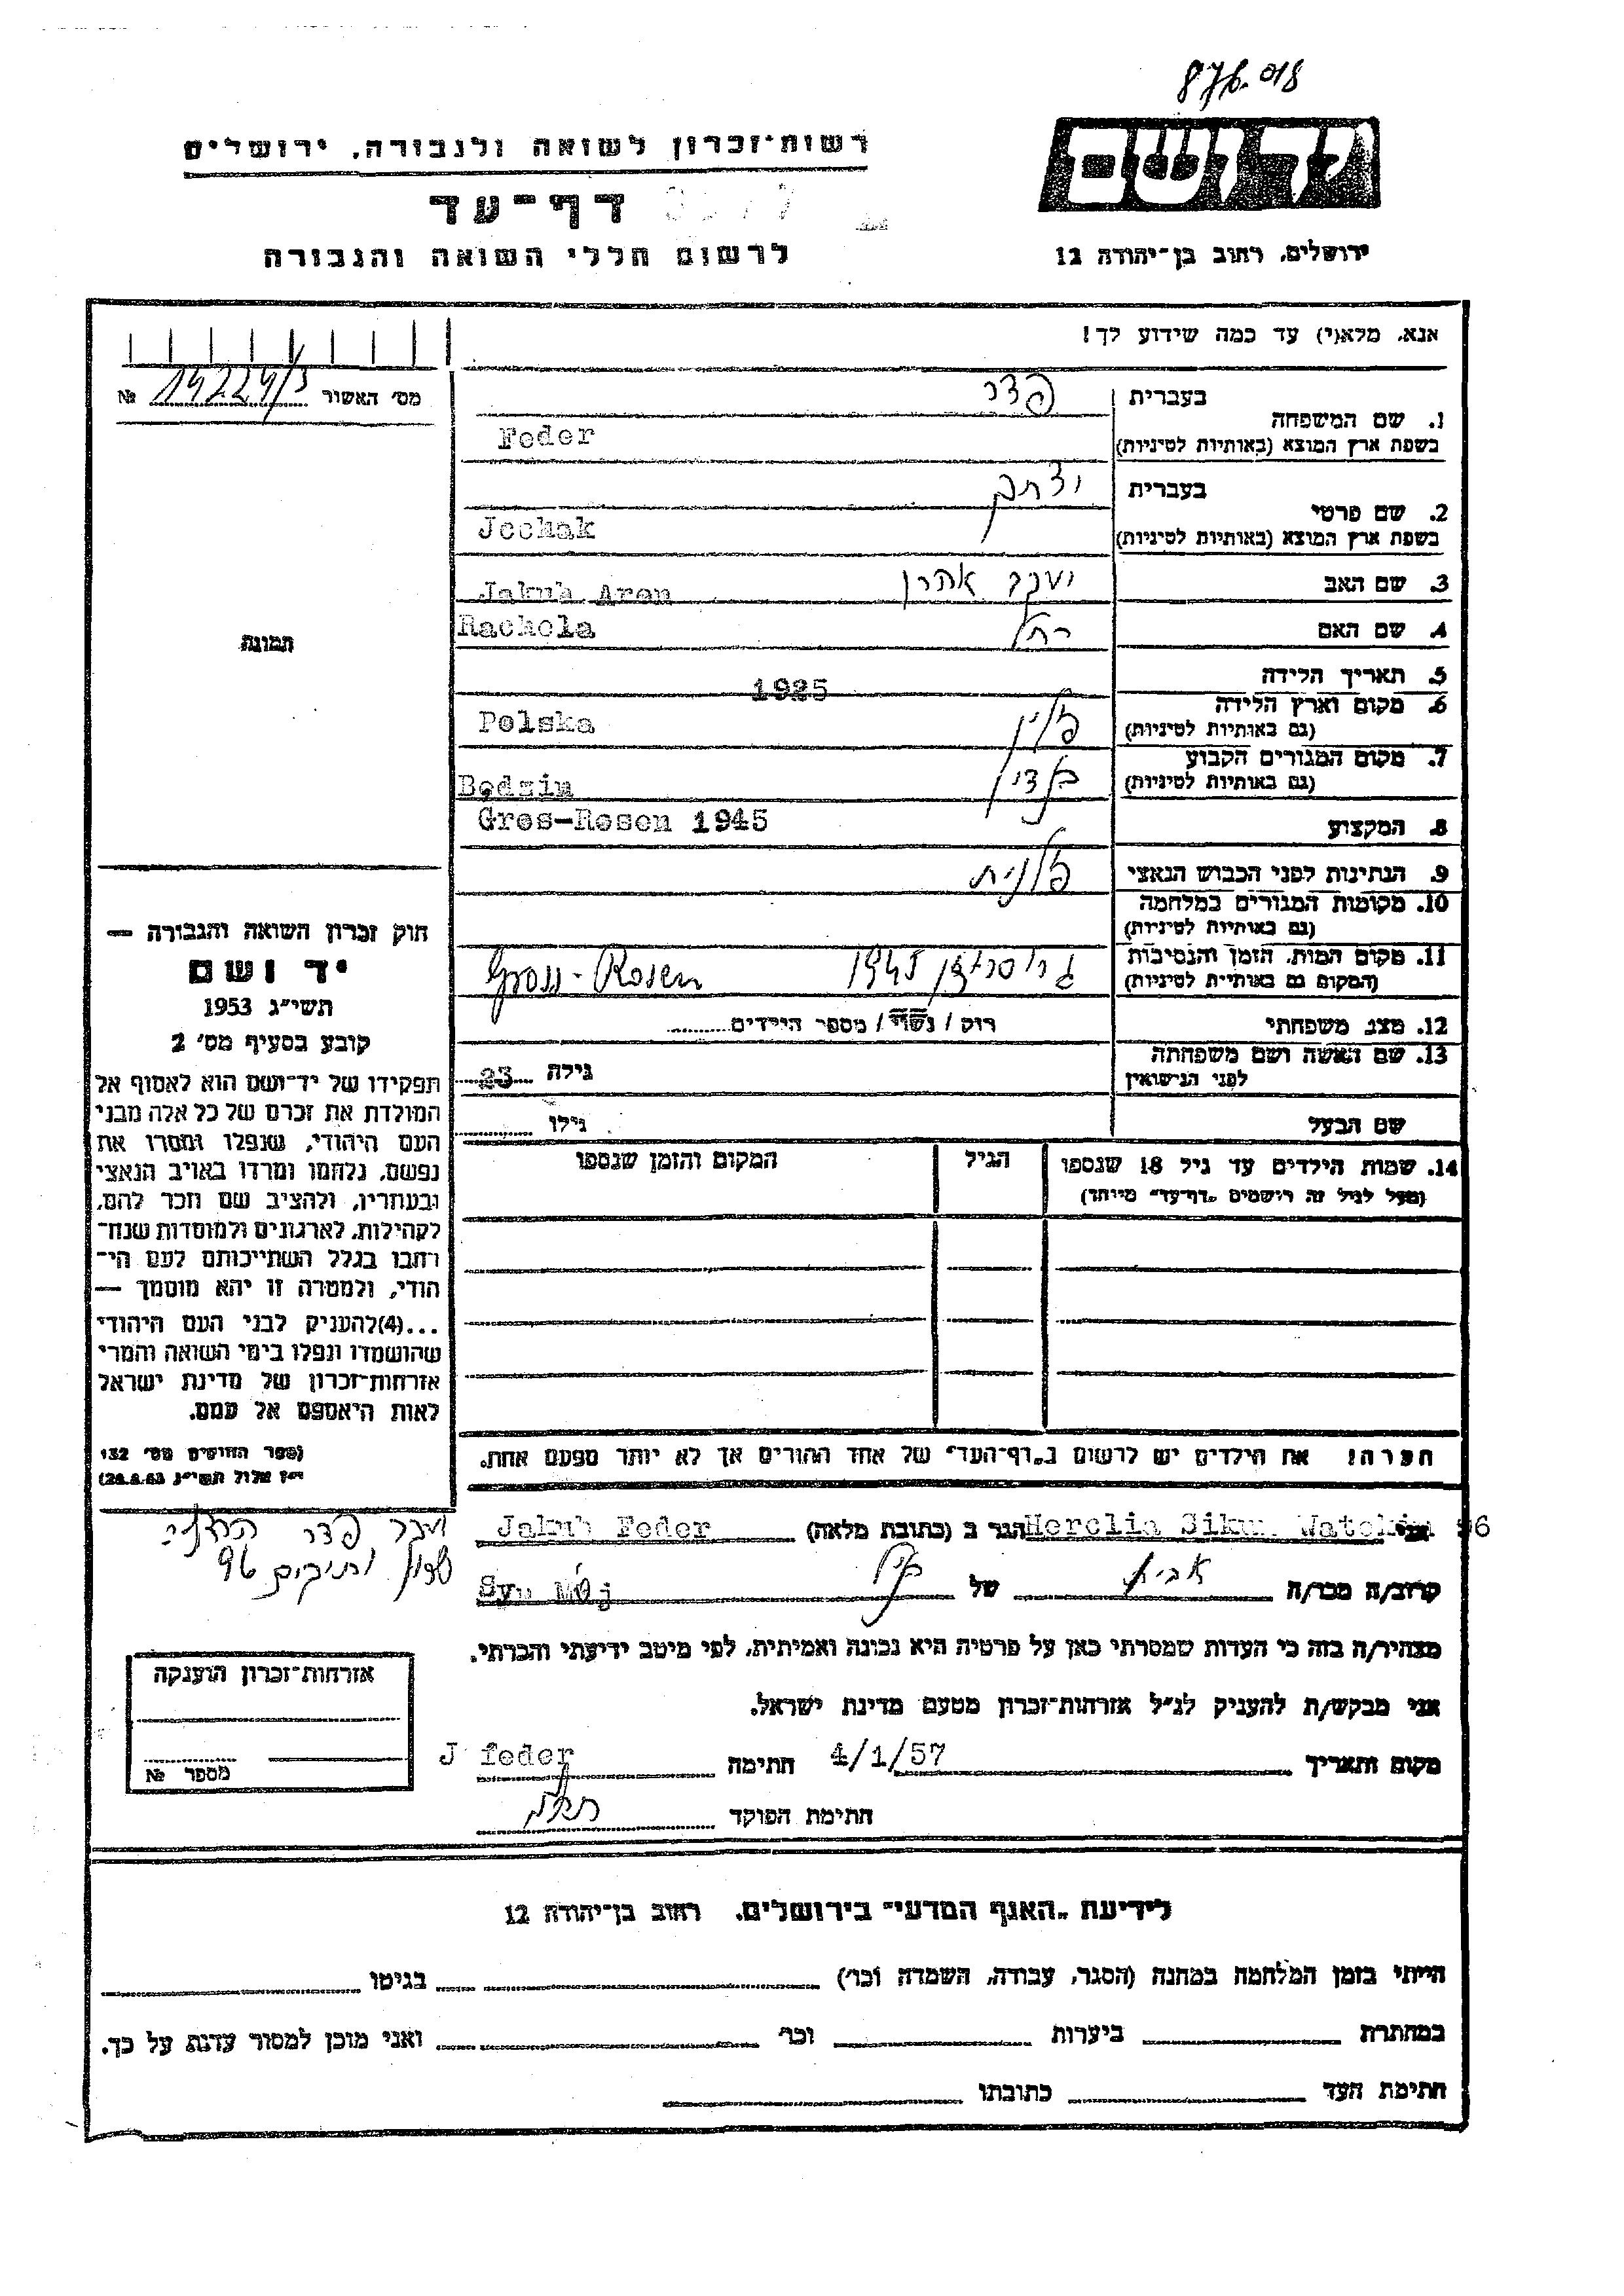 רשות־זכרון לשואה ולגבורה, ירושלים
יד ושם
דף־עד
לרשום חללי השואה והגבורה
ירושלים, רחוב בן־יהודה 12
אנא, מלא(י) עד כמה שידוע לך!
מס׳ האשור №
בעברית פדר
1. שם המשפחה
בשפת ארץ המוצא (באותיות לטיניות) Feder
בעברית יצחק
2. שם פרטי
בשפת ארץ המוצא (באותיות לטיניות) Jcchak
3. שם האב יעקב אהרן Jakub Aron
4. שם האם רחל Rachela
5. תאריך הלידה 1925
6. מקום וארץ הלידה פולין Polska
(גם באותיות לטיניות)
7. מקום המגורים הקבוע בנדין Będzin
(גם באותיות לטיניות)
8. המקצוע Gros-Rosen 1945
9. הנתינות לפני הכבוש הנאצי פולנית
10. מקומות המגורים במלחמה
(גם באותיות לטיניות)
11. מקום המות, הזמן והנסיבות גרוסרוזן 1945 Gross-Rosen
(המקום גם באותיות לטיניות)
12. מצב משפחתי רוק / נשוי / מספר הילדים
13. שם האשה ושם משפחתה גילה 23
לפני הנישואין
שם הבעל גילו
14. שמות הילדים עד גיל 18 שנספו הגיל המקום והזמן שנספו
(מעל לגיל זה רושמים „דף־עד״ מיוחד)
הערה! את הילדים יש לרשום ב„דף־העד״ של אחד ההורים אך לא יותר מפעם אחת.
תמונה
חוק זכרון השואה והגבורה —
יד ושם
תשי״ג 1953
קובע בסעיף מס׳ 2
תפקידו של יד־ושם הוא לאסוף אל
המולדת את זכרם של כל אלה מבני
העם היהודי, שנפלו ומסרו את
נפשם, נלחמו ומרדו באויב הנאצי
ובעוזריו, ולהציב שם וזכר להם,
לקהילות, לארגונים ולמוסדות שנח־
רבו בגלל השתייכותם לעם הי־
הודי, ולמטרה זו יהא מוסמך —
...(4) להעניק לבני העם היהודי
שהושמדו ונפלו בימי השואה והמרי
אזרחות־זכרון של מדינת ישראל
לאות היאספם אל עמם.
(ספר החוקים מס׳ 132
י״ז אלול תשי״ג 28.8.53)
אני Jakub Feder הגר ב (כתובת מלאה) Herclia Sikun Watekim 96
יעקב פדר הרצליה
שכון ותיקים 96
קרוב/ה מכר/ה אביו של בני Syn Mój
מצהיר/ה בזה כי העדות שמסרתי כאן על פרטיה היא נכונה ואמיתית, לפי מיטב ידיעתי והכרתי.
אני מבקש/ת להעניק לנ״ל אזרחות־זכרון מטעם מדינת ישראל.
מקום ותאריך 4/1/57 חתימה J feder
חתימת הפוקד
אזרחות־זכרון הוענקה
מספר №
לידיעת „האגף המדעי״ בירושלים, רחוב בן־יהודה 12
הייתי בזמן המלחמה במחנה (הסגר, עבודה, השמדה וכו׳) בגיטו
במחתרת ביערות וכו׳ ואני מוכן למסור עדות על כך.
חתימת העד כתובתו